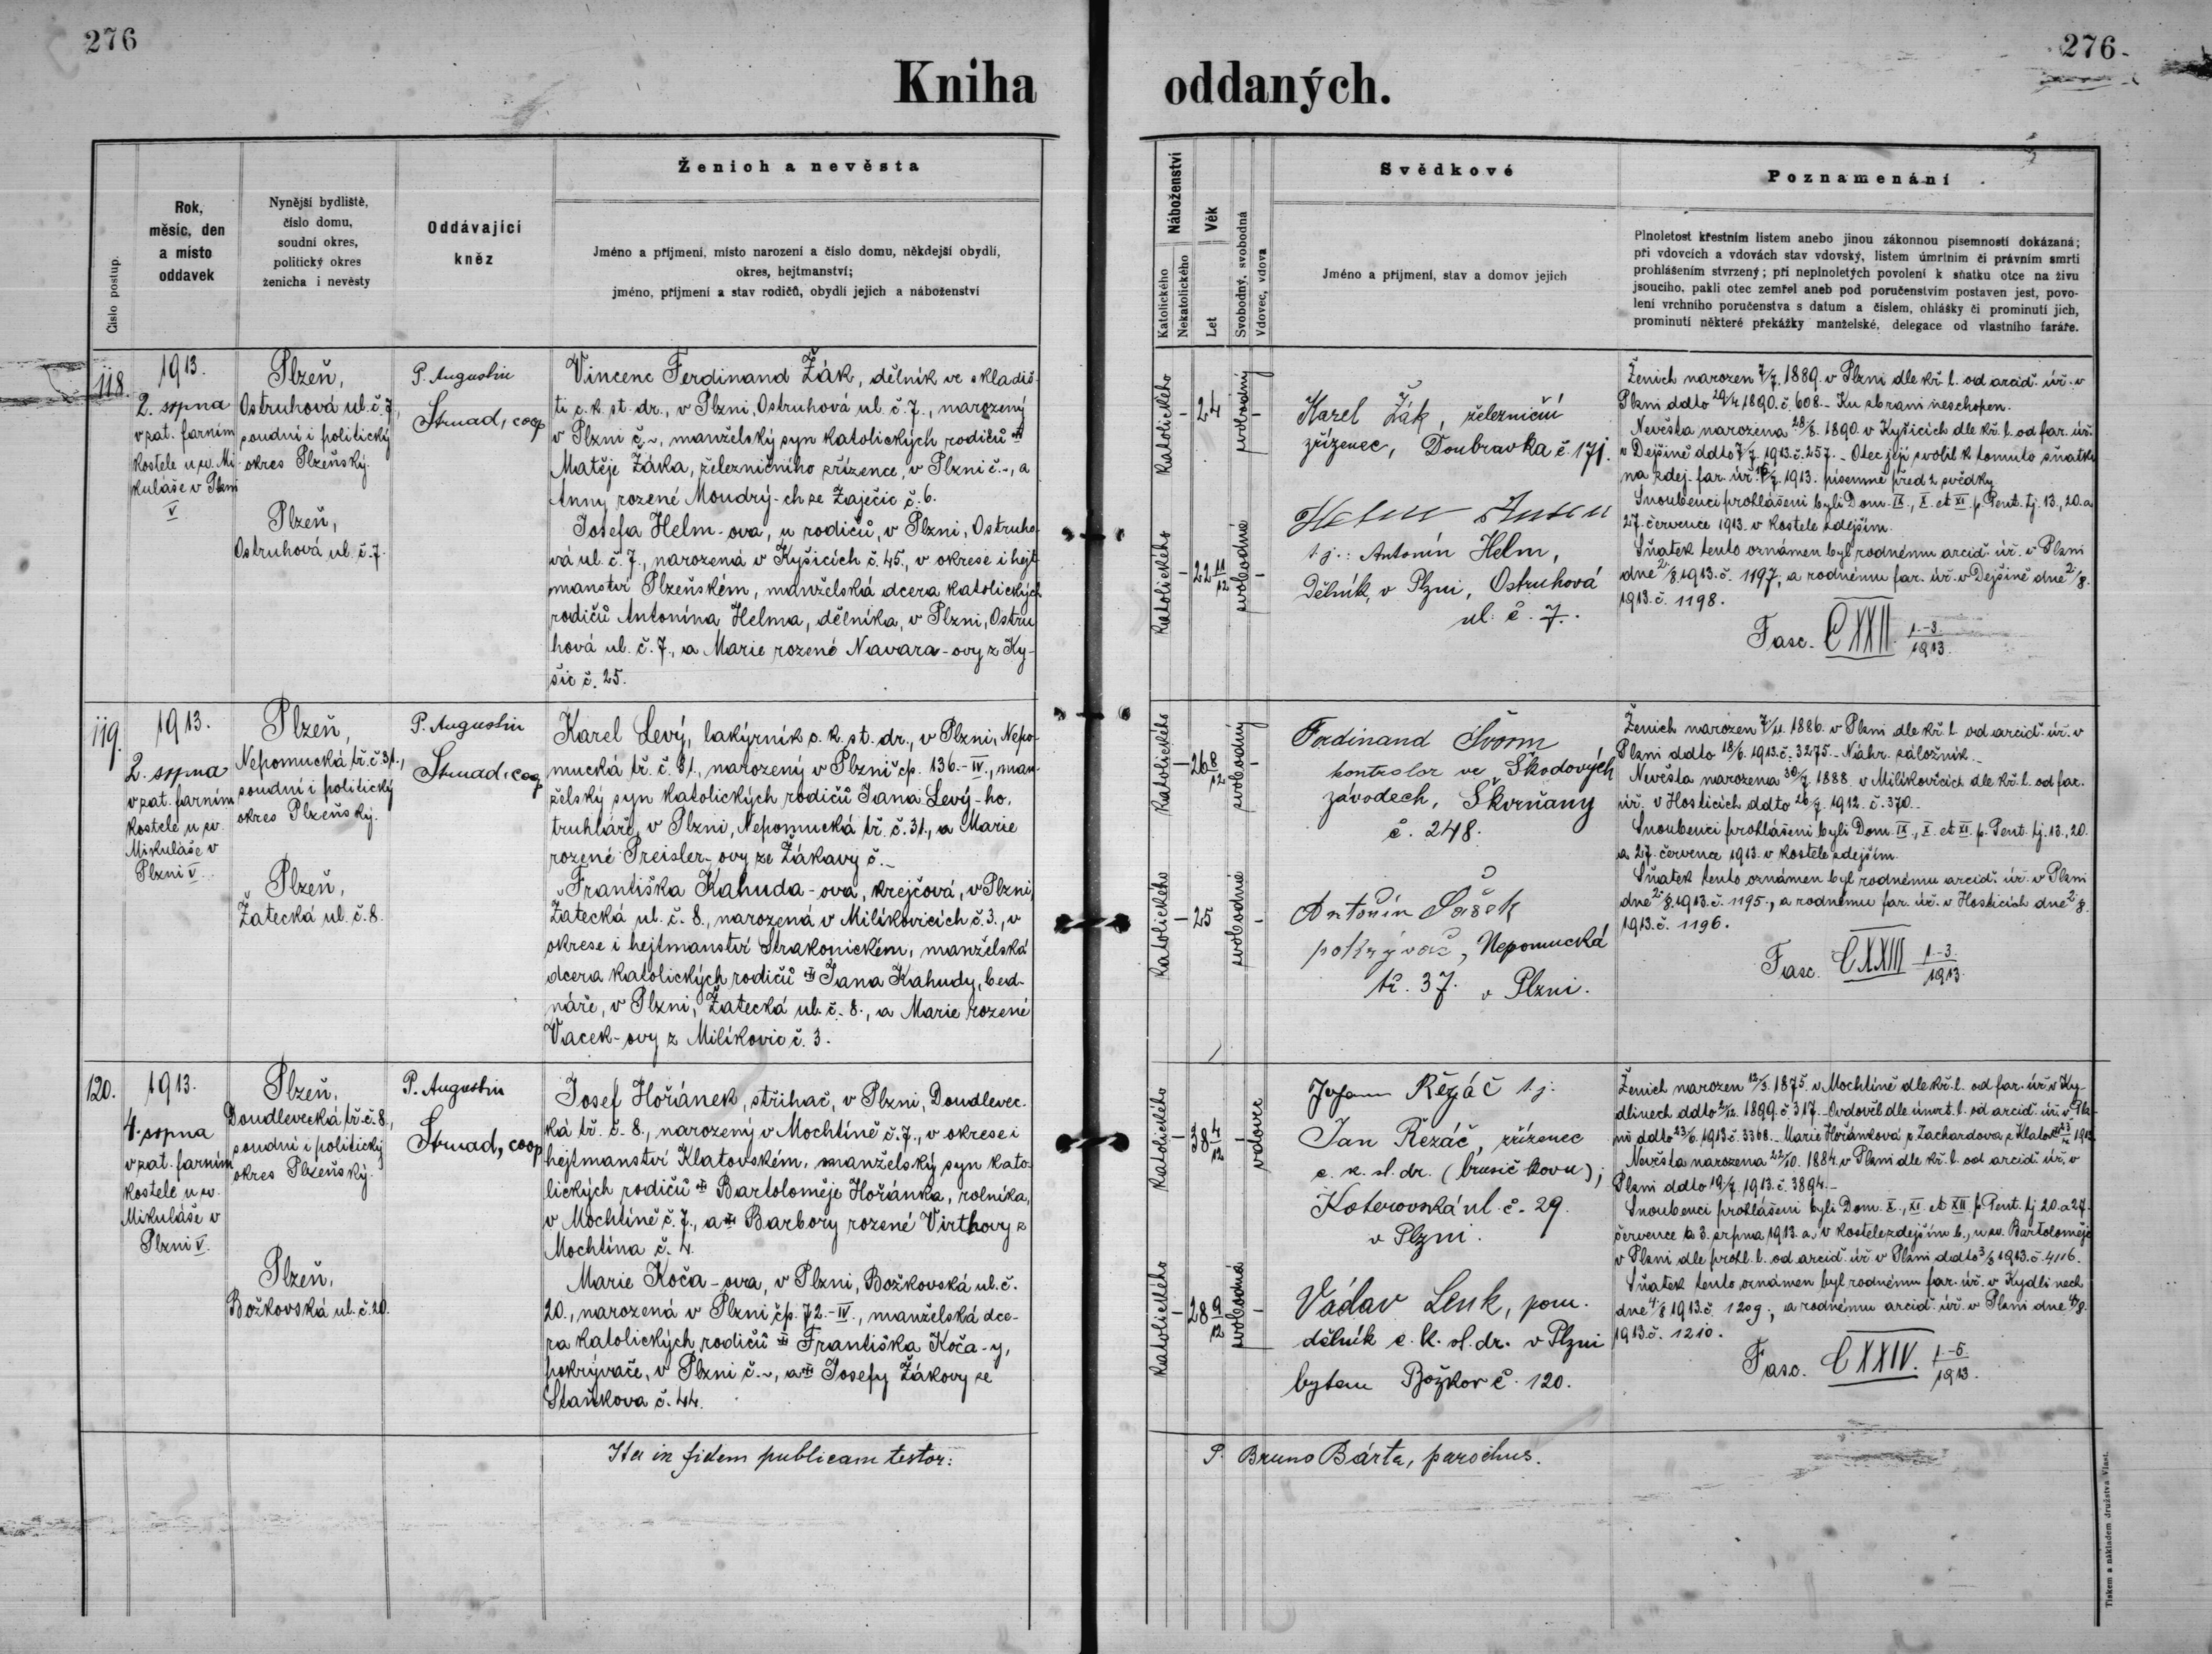 276
276
Kniha oddaných.
Číslo postup.
Rok,
měsíc, den
a místo
oddavek
Nynější bydliště,
číslo domu,
soudní okres,
politický okres
ženicha i nevěsty
Oddávající
kněz
Ženich a nevěsta
Jméno a příjmení, místo narození a číslo domu, někdejší obydlí,
okres, hejtmanství;
jméno, příjmení a stav rodičů, obydlí jejich a náboženství
Náboženství
Katolického
Nekatolického
Věk
Let
Svobodný, svobodná
Vdovec, vdova
Svědkové
Jméno a příjmení, stav a domov jejich
Poznamenání
Plnoletost křestním listem anebo jinou zákonnou písemností dokázaná;
při vdovcích a vdovách stav vdovský, listem úmrtním či právním smrti
prohlášením stvrzený; při neplnoletých povolení k sňatku otce na živu
jsoucího, pakli otec zemřel aneb pod poručenstvím postaven jest, povo-
lení vrchního poručenstva s datum a číslem, ohlášky či prominutí jich,
prominutí některé překážky manželské, delegace od vlastního faráře.
118.
1913.
2. srpna
v zat. farním
kostele u sv. Mi
kuláše v Plzni
V
Plzeň,
Ostruhová ul. č. 7,
soudní i politický
okres Plzeňský.
Plzeň,
Ostruhová ul. č. 7.
P. Augustin
Strnad, coop
Vincenc Ferdinand Žák, dělník ve skladiš-
ti c. k. st. dr., v Plzni, Ostruhová ul. č. 7., narozený
v Plzni č. ~, manželský syn katolických rodičů
Matěje Žáka, železničního zřízence, v Plzni č. ~, a
Anny rozené Moudrý-ch ze Zaječic č. 6.
Josefa Helm-ova, u rodičů, v Plzni, Ostruho-
vá ul. č. 7., narozená v Kyšicích č. 45., v okrese i hejt
manství Plzeňském, manželská dcera katolických
rodičů Antonína Helma, dělníka, v Plzni, Ostru
hová ul. č. 7., a Marie rozené Navara-ovy z Ky-
šic č. 25.
Katolického
24
svobodný
Katolického
22 11/12
svobodná
Karel Žák, železniční
zřízenec, Doubravka č. 171.
Helm Anton
t. j.: Antonín Helm,
Dělník, v Plzni, Ostruhová
ul. č. 7.
Ženich narozen 7/7. 1889. v Plzni dle kř. l. od arciď. úř. v
Plzni ddto 1890. č. 608. - Ku zbrani neschopen.
Nevěsta narozena 28/8. 1890. v Kyšicích dle kř. l. od far. úř.
v Dejšině ddto 7/7. 1913. č. 257. - Otec její svolil k tomuto sňatku
na zdej. far. úř. 1913. písemně před 2 svědky.
Snoubenci prohlášeni byli Dom. IX., X. et XI. p. Pent. tj. 13., 20. a
27. července 1913. v kostele zdejším.
Sňatek tento oznámen byl rodnému arciď. úř. v Plzni
dne 2/8. 1913. č. 1197, a rodnému far. úř. v Dejšině dne 2/8.
1913. č. 1198.
Fasc. CXXII. 1-3/1913.
119.
1913.
2. srpna
v zat. farním
kostele u sv.
Mikuláše v
Plzni V.
Plzeň,
Nepomucká tř. č. 31.,
soudní i politický
okres Plzeňský.
Plzeň,
Žatecká ul. č. 8.
P. Augustin
Strnad, coop
Karel Levý, lakýrník c. k. st. dr., v Plzni, Nepo-
mucká tř. č. 31., narozený v Plzni čp. 136.-IV., man-
želský syn katolických rodičů Jana Levý-ho,
truhláře, v Plzni, Nepomucká tř. č. 31., a Marie
rozené Preisler-ovy ze Žákavy č. ~
Františka Kahuda-ova, krejčová, v Plzni,
Žatecká ul. č. 8., narozená v Milíkovicích č. 3., v
okrese i hejtmanství Strakonickém, manželská
dcera katolických rodičů Jana Kahudy, bed-
náře, v Plzni, Žatecká ul. č. 8., a Marie rozené
Vacek-ovy z Milíkovic č. 3.
Katolického
26 8/12
svobodný
Katolického
25
svobodná
Ferdinand
kontrolor ve Škodových
závodech, Škvrňany
č. 248.
Antonín Sašek
pokrývač, Nepomucká
tř. 37. v Plzni.
Ženich narozen 7/11. 1886. v Plzni dle kř. l. od arciď. úř. v
Plzni ddto 18/6. 1913. č. 3275. - Náhr. záložník.
Nevěsta narozena 30/7. 1888. v Milíkovicích dle kř. l. od far.
úř. v Hosticích ddto 1912. č. 370. -
Snoubenci prohlášeni byli Dom. IX., X. et XI. p. Pent. tj. 13., 20.
a 27. července 1913. v kostele zdejším.
Sňatek tento oznámen byl rodnému arciď. úř. v Plzni
dne 2/8. 1913. č. 1195., a rodnému far. úř. v Hosticích dne 2/8.
1913. č. 1196.
Fasc. CXXIII 1-3/1913.
120.
1913.
4. srpna
v zat. farním
kostele u sv.
Mikuláše v
Plzni V.
Plzeň,
Doudlevecká tř. č. 8.,
soudní i politický
okres Plzeňský.
Plzeň,
Božkovská ul. č. 20.
P. Augustin
Strnad, coop
Josef Hořánek, střihač, v Plzni, Doudlevec-
ká tř. č. 8., narozený v Mochtíně č. 7., v okrese i
hejtmanství Klatovském, manželský syn kato-
lických rodičů Bartoloměje Hořánka, rolníka,
v Mochtíně č. 7., a Barbory rozené Virthovy z
Mochtína č. 4.
Marie Koča-ova, v Plzni, Božkovská ul. č.
20., narozená v Plzni čp. 72.-IV., manželská dce-
ra katolických rodičů Františka Koča-y,
pokrývače, v Plzni č. ~, a Josefy Žákovy ze
Staňkova č. 44.
Katolického
38 4/12
vdovec
Katolického
28 9/12
svobodná
Johann Řezáč t. j.
Jan Řezáč, zřízenec
c. k. st. dr. (brusič kovu);
Koterovská ul. č. 29.
v Plzni.
Václav Lenk, pom.
dělník c. k. st. dr. v Plzni
bytem Božkov č. 120.
Ženich narozen 1875. v Mochtíně dle kř. l. od far. úř. v Ky-
dlinech ddto 1899. č. 317. - Ovdověl dle úmrt. l. od arciď. úř. v Plz-
ni ddto 23/6. 1913. č. 3368. - Marie Hořánková r. Zachardova z Klatov
Nevěsta narozena 22/10. 1884. v Plzni dle kř. l. od arciď. úř. v
Plzni ddto 19/7. 1913. č. 3894. -
Snoubenci prohlášeni byli Dom. X., XI. et XII. p. Pent. tj. 20. a 27.
července a 3. srpna 1913. a, v kostele zdejším b., u sv. Bartoloměje
v Plzni dle prohl. l. od arciď. úř. v Plzni ddto 3/8 1913. č. 4116.
Sňatek tento oznámen byl rodnému far. úř. v Kydlinech
dne 4/8 1913. č. 1209., a rodnému arciď. úř. v Plzni dne 4/8.
1913. č. 1210.
Fasc. CXXIV. 1-5/1913.
Ita in fidem publicam testor: P. Bruno Bárta, parochus.
Tiskem a nákladem družstva Vlast.